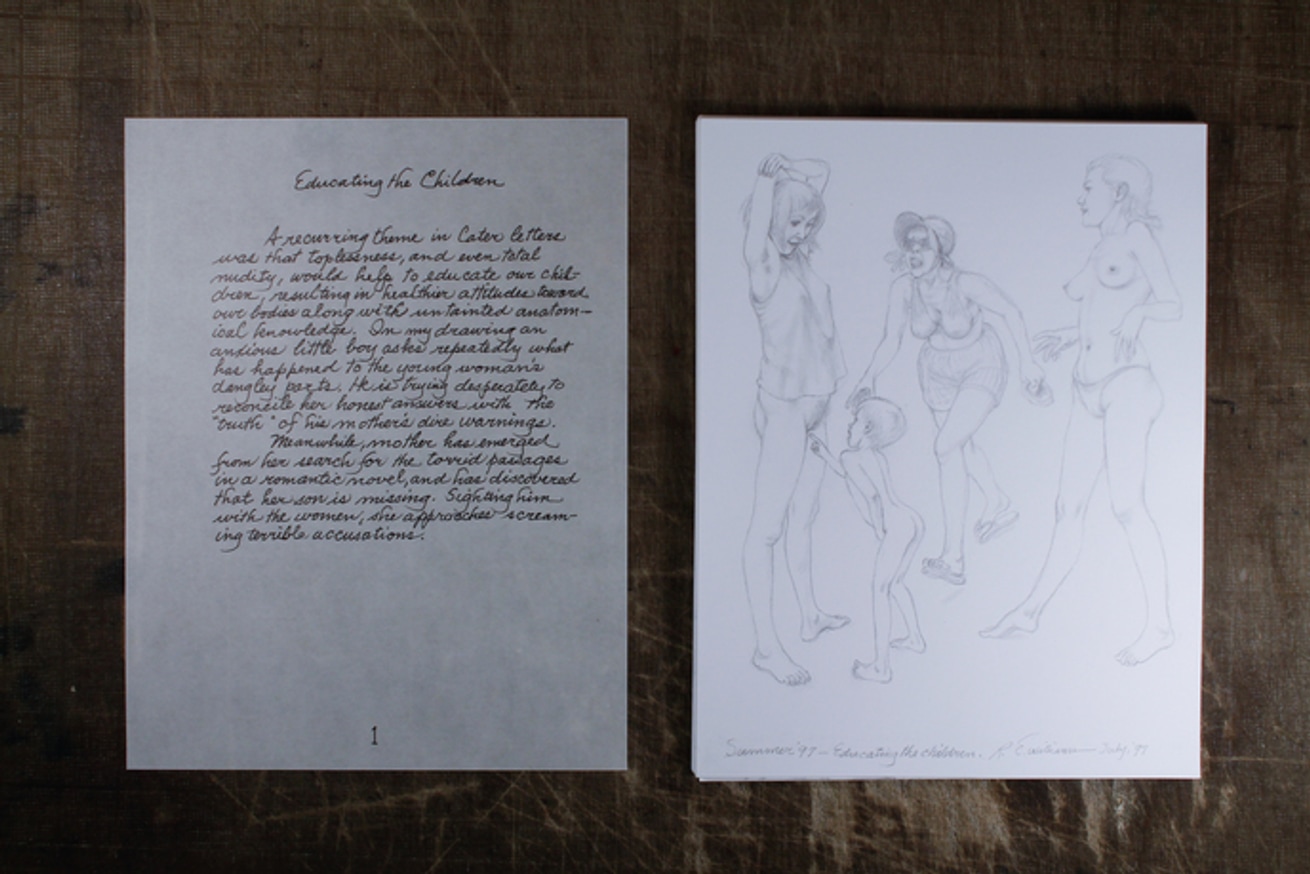 Educating the Children
A recurring theme in Cater letters
was that toplessness, and even total
nudity, would help to educate our chil-
dren, resulting in healthier attitudes toward
our bodies along with untainted anatom-
ical knowledge. In my drawing an
anxious little boy asks repeatedly what
has happened to the young woman's
dangley parts. He is trying desperately to
reconcile her honest answers with the
"truth" of his mother's dire warnings.
Meanwhile, mother has emerged
from her search for the torrid passages
in a romantic novel, and has discovered
that her son is missing. Sighting him
with the women, she approaches scream-
ing terrible accusations.
1
Summer '97 — Educating the children. R. July, '97